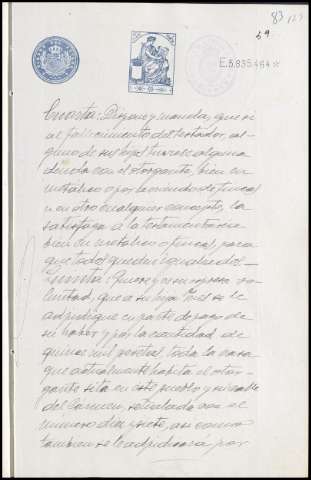 59
83
E.5.835.464
Cuarta: Dispone y manda, que si
al fallecimiento del testador, al-
guno de sus hijos tuviese alguna
deuda con el otorgante, bien en
metálico o por la venta de fincas
u en otro cualquier concepto, la
satisfaga a la testamentaria
bien en metálico o fincas, para
que todos queden igualados.-
Quinta: Quiere y es su expresa vo-
luntad, que a su hijo se le
adjudique en parte de pago de
su haber y por la cantidad de
quince mil pesetas, toda la casa
que actualmente habita el otor-
gante sita en este pueblo y su calle
del Cármen, señalada con el
número diez y siete, asi como
tambien se le adjudicará por